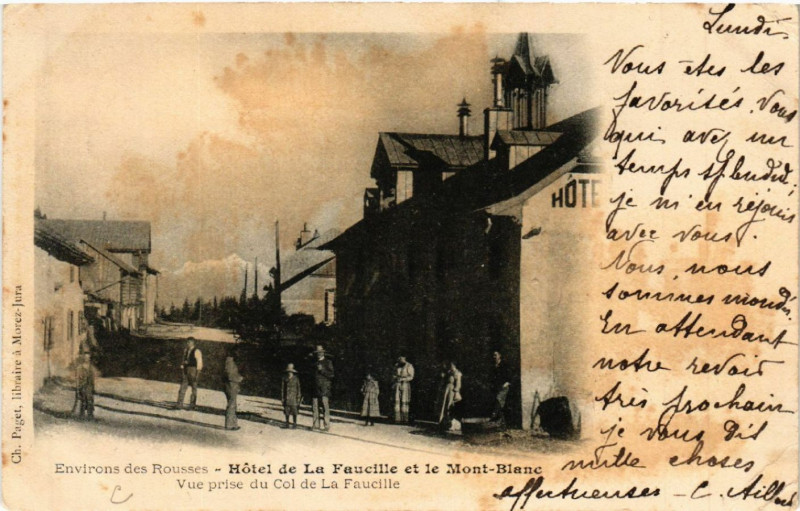 Lundi.
Vous êtes les
favorisés. Vous
qui avez un
temps splendide,
je m'en réjouis
avec vous.
Nous, nous
sommes
En attendant
notre revoir
très prochain
je vous dis
mille choses
affectueuses - C.
HÔTE
Ch. Paget, libraire à Morez-Jura
Environs des Rousses - Hôtel de La Faucille et le Mont-Blanc
Vue prise du Col de La Faucille